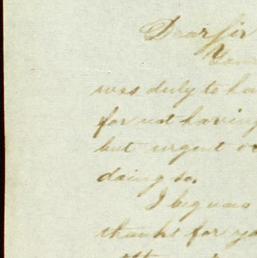 Dear Sir
was duly to ha
for not having
but urgent
doing so.
I beg
thanks for yo